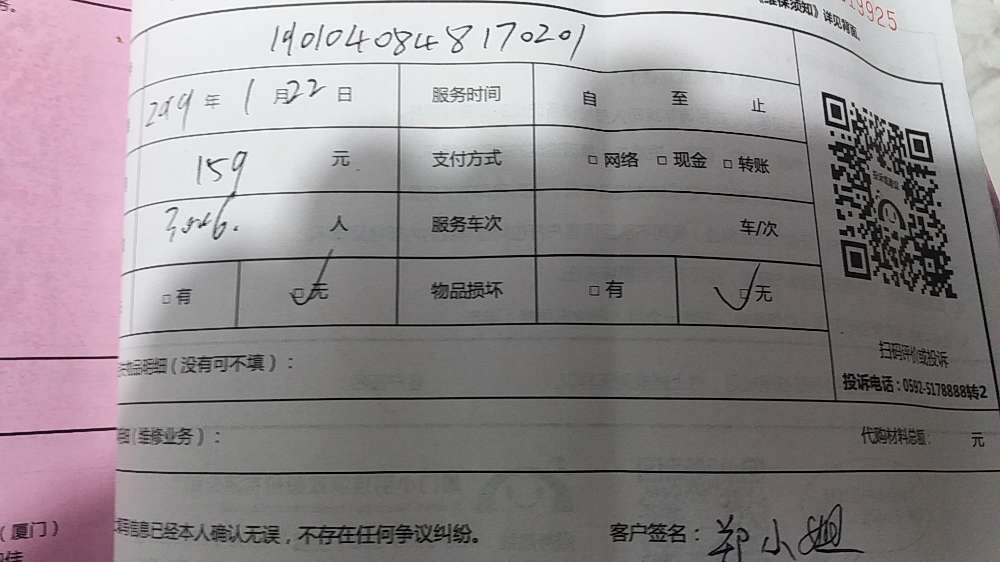 《维保须知》详见背面。
19925
1901040848170201
年 1 月 22 日 服务时间 自 至 止
159 元 支付方式 □ 网络 □ 现金 □ 转账
人 服务车次 车/次
□ 有 □ 无 物品损坏 □ 有 □ 无
扫码评价或投诉
物品明细（没有可不填）：
投诉电话：0592-5178888转2
（维修业务）： 代购材料总额： 元
信息已经本人确认无误，不存在任何争议纠纷。 客户签名：郑小姐
（厦门）